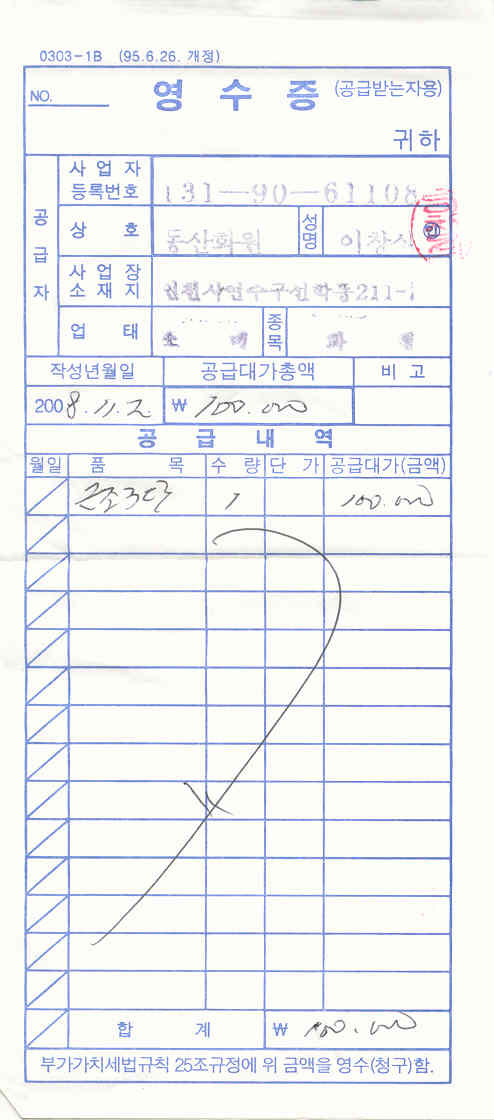 0303-1B (95.6.26. 개정)
NO. 영 수 증 (공급받는자용)
귀하
공급자
사업자등록번호 131-90-61108
상 호 동산화원 성명 이창
사업장소재지 인천시연수구선학동211-
업 태 소 매 종목 화
작성년월일 공급대가총액 비 고
2008.11.2 ₩ 100.000
공 급 내 역
월일 품 목 수 량 단 가 공급대가(금액)
근조3단 1 100.000
합 계 ₩ 100.000
부가가치세법규칙 25조규정에 위 금액을 영수(청구)함.